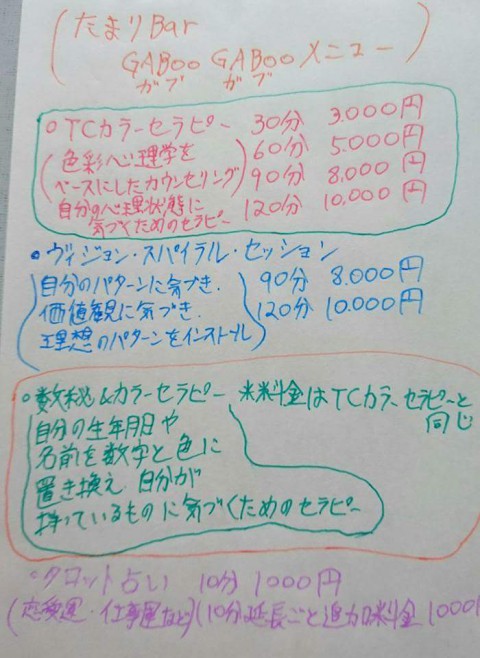 たまりBar
GABoo GABooメニュー
ガブ ガブ
○TCカラーセラピー 30分 3.000円
色彩心理学を 60分 5.000円
ベースにしたカウンセリング 90分 8,000円
自分の心理状態に 120分 10,000円
気づくためのセラピー
・ヴィジョン・スパイラル・セッション
自分のパターンに気づき. 90分 8.000円
価値観に気づき. 120分 10.000円
理想のパターンをインストール
○数秘&カラーセラピー ※料金はTCカラーセラピーと
同じ
自分の生年月日や
名前を数字と色に
置き換え 自分が
持っているものに気づくためのセラピー
・タロット占い 10分 1000円
(恋愛運・仕事運など)(10分延長ごと追加料金1000